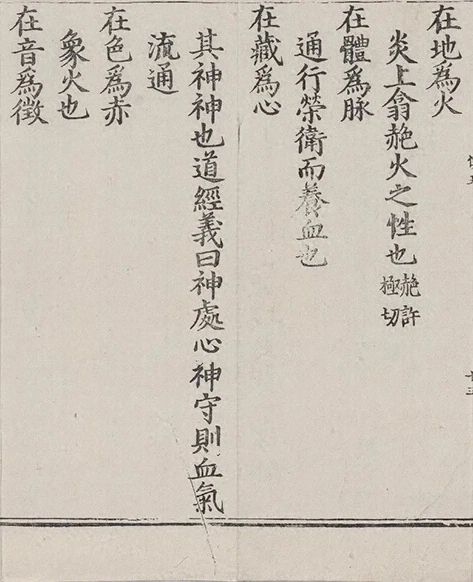 在地爲火
炎上翕赩火之性也赩許極切
在體爲脉
通行榮衛而養血也
在藏爲心
其神神也道經義曰神處心神守則血氣
流通
在色爲赤
象火也
在音爲徵